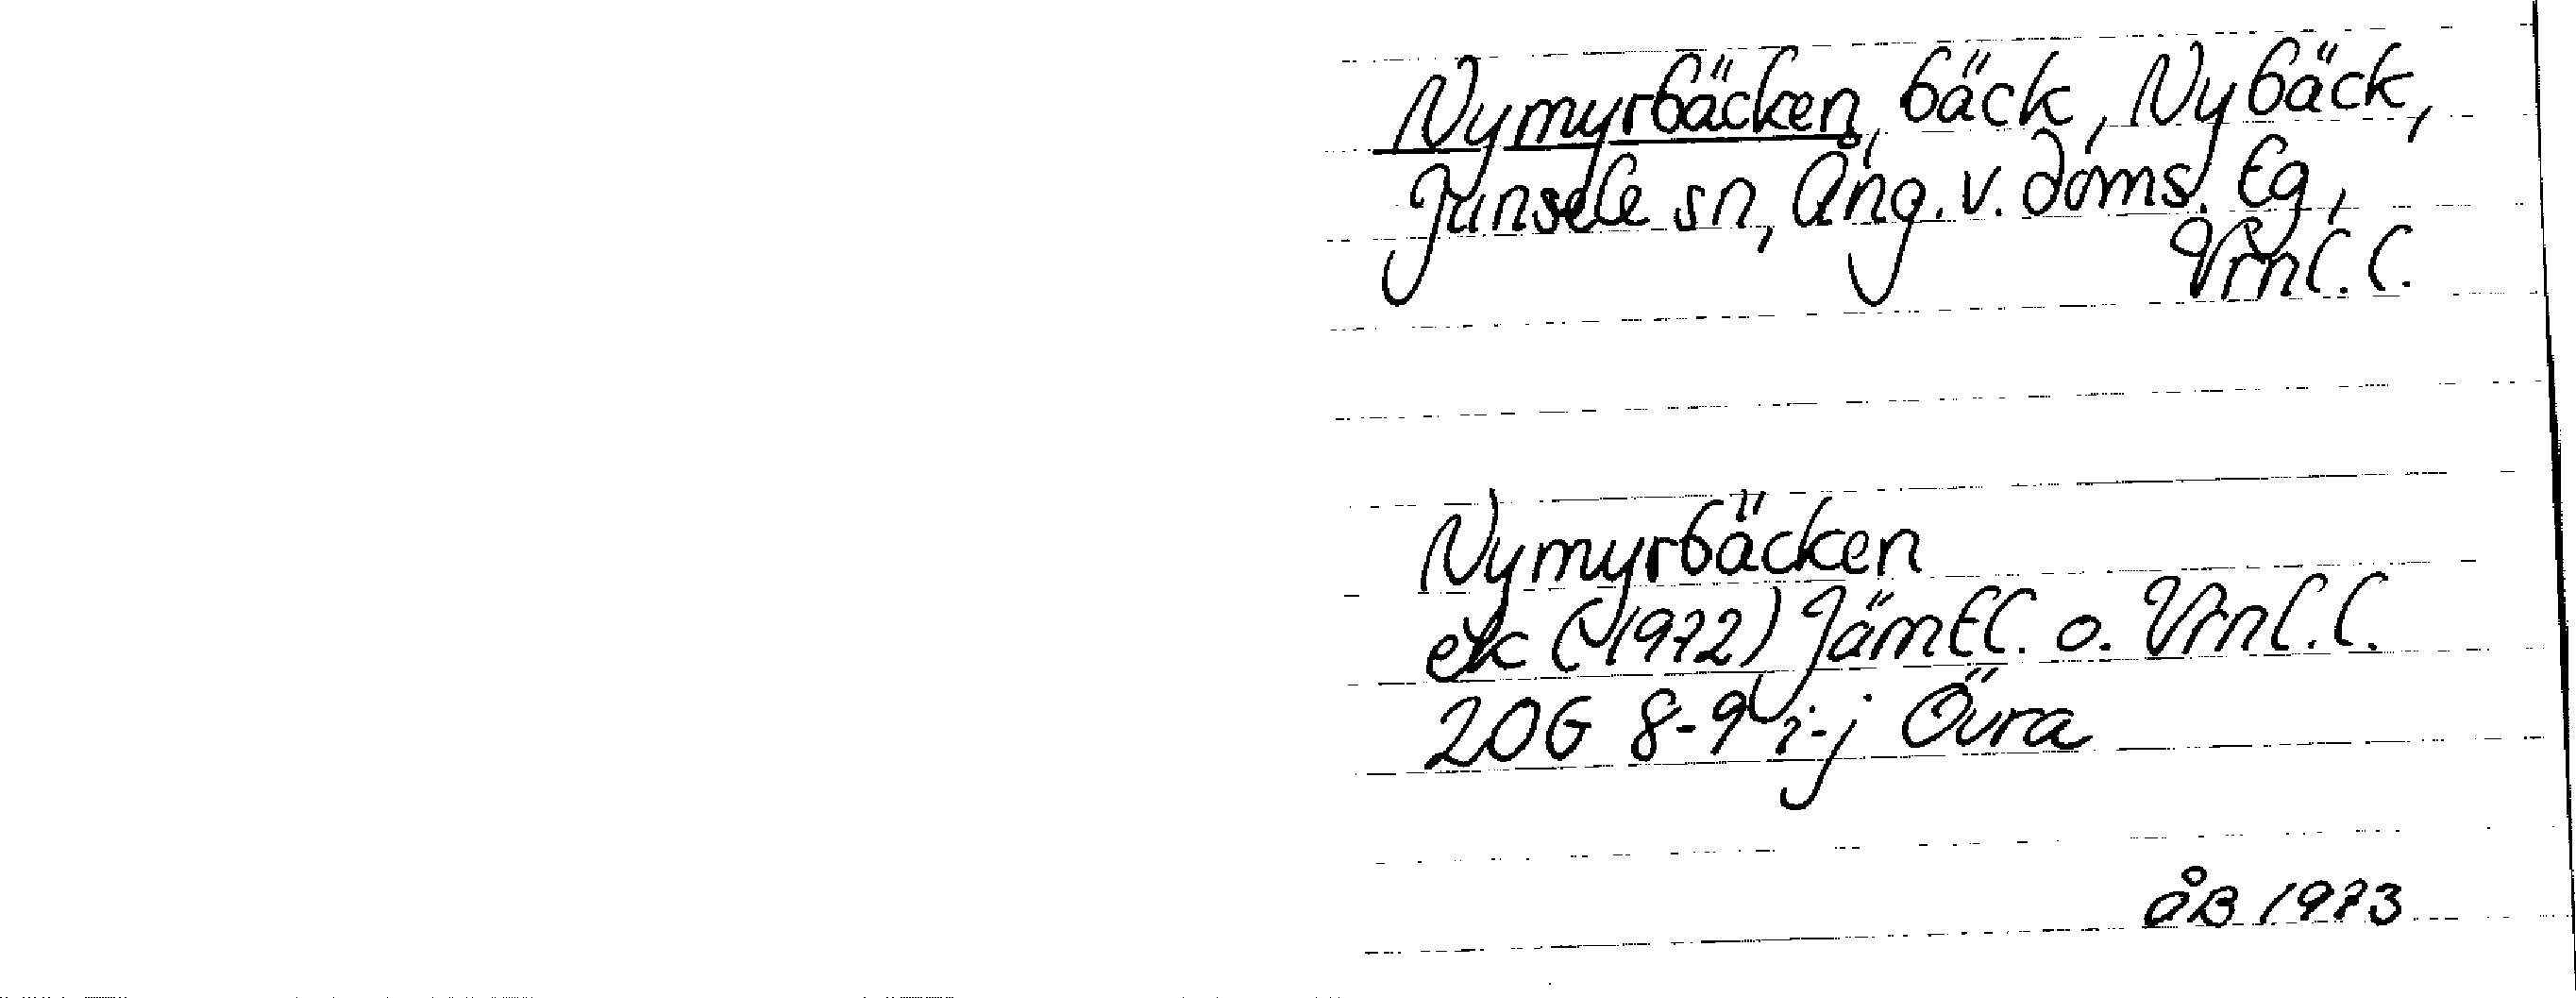 Nymyrbäcken, bäck, Nybäck,
Junsele sn, Ång. v. doms. tg,
Vrnl.l.
Nymyrbäcken
ek (1972) Jämtl. o. Vrnl.l.
20G 8-9 i-j Övra
åB 1973